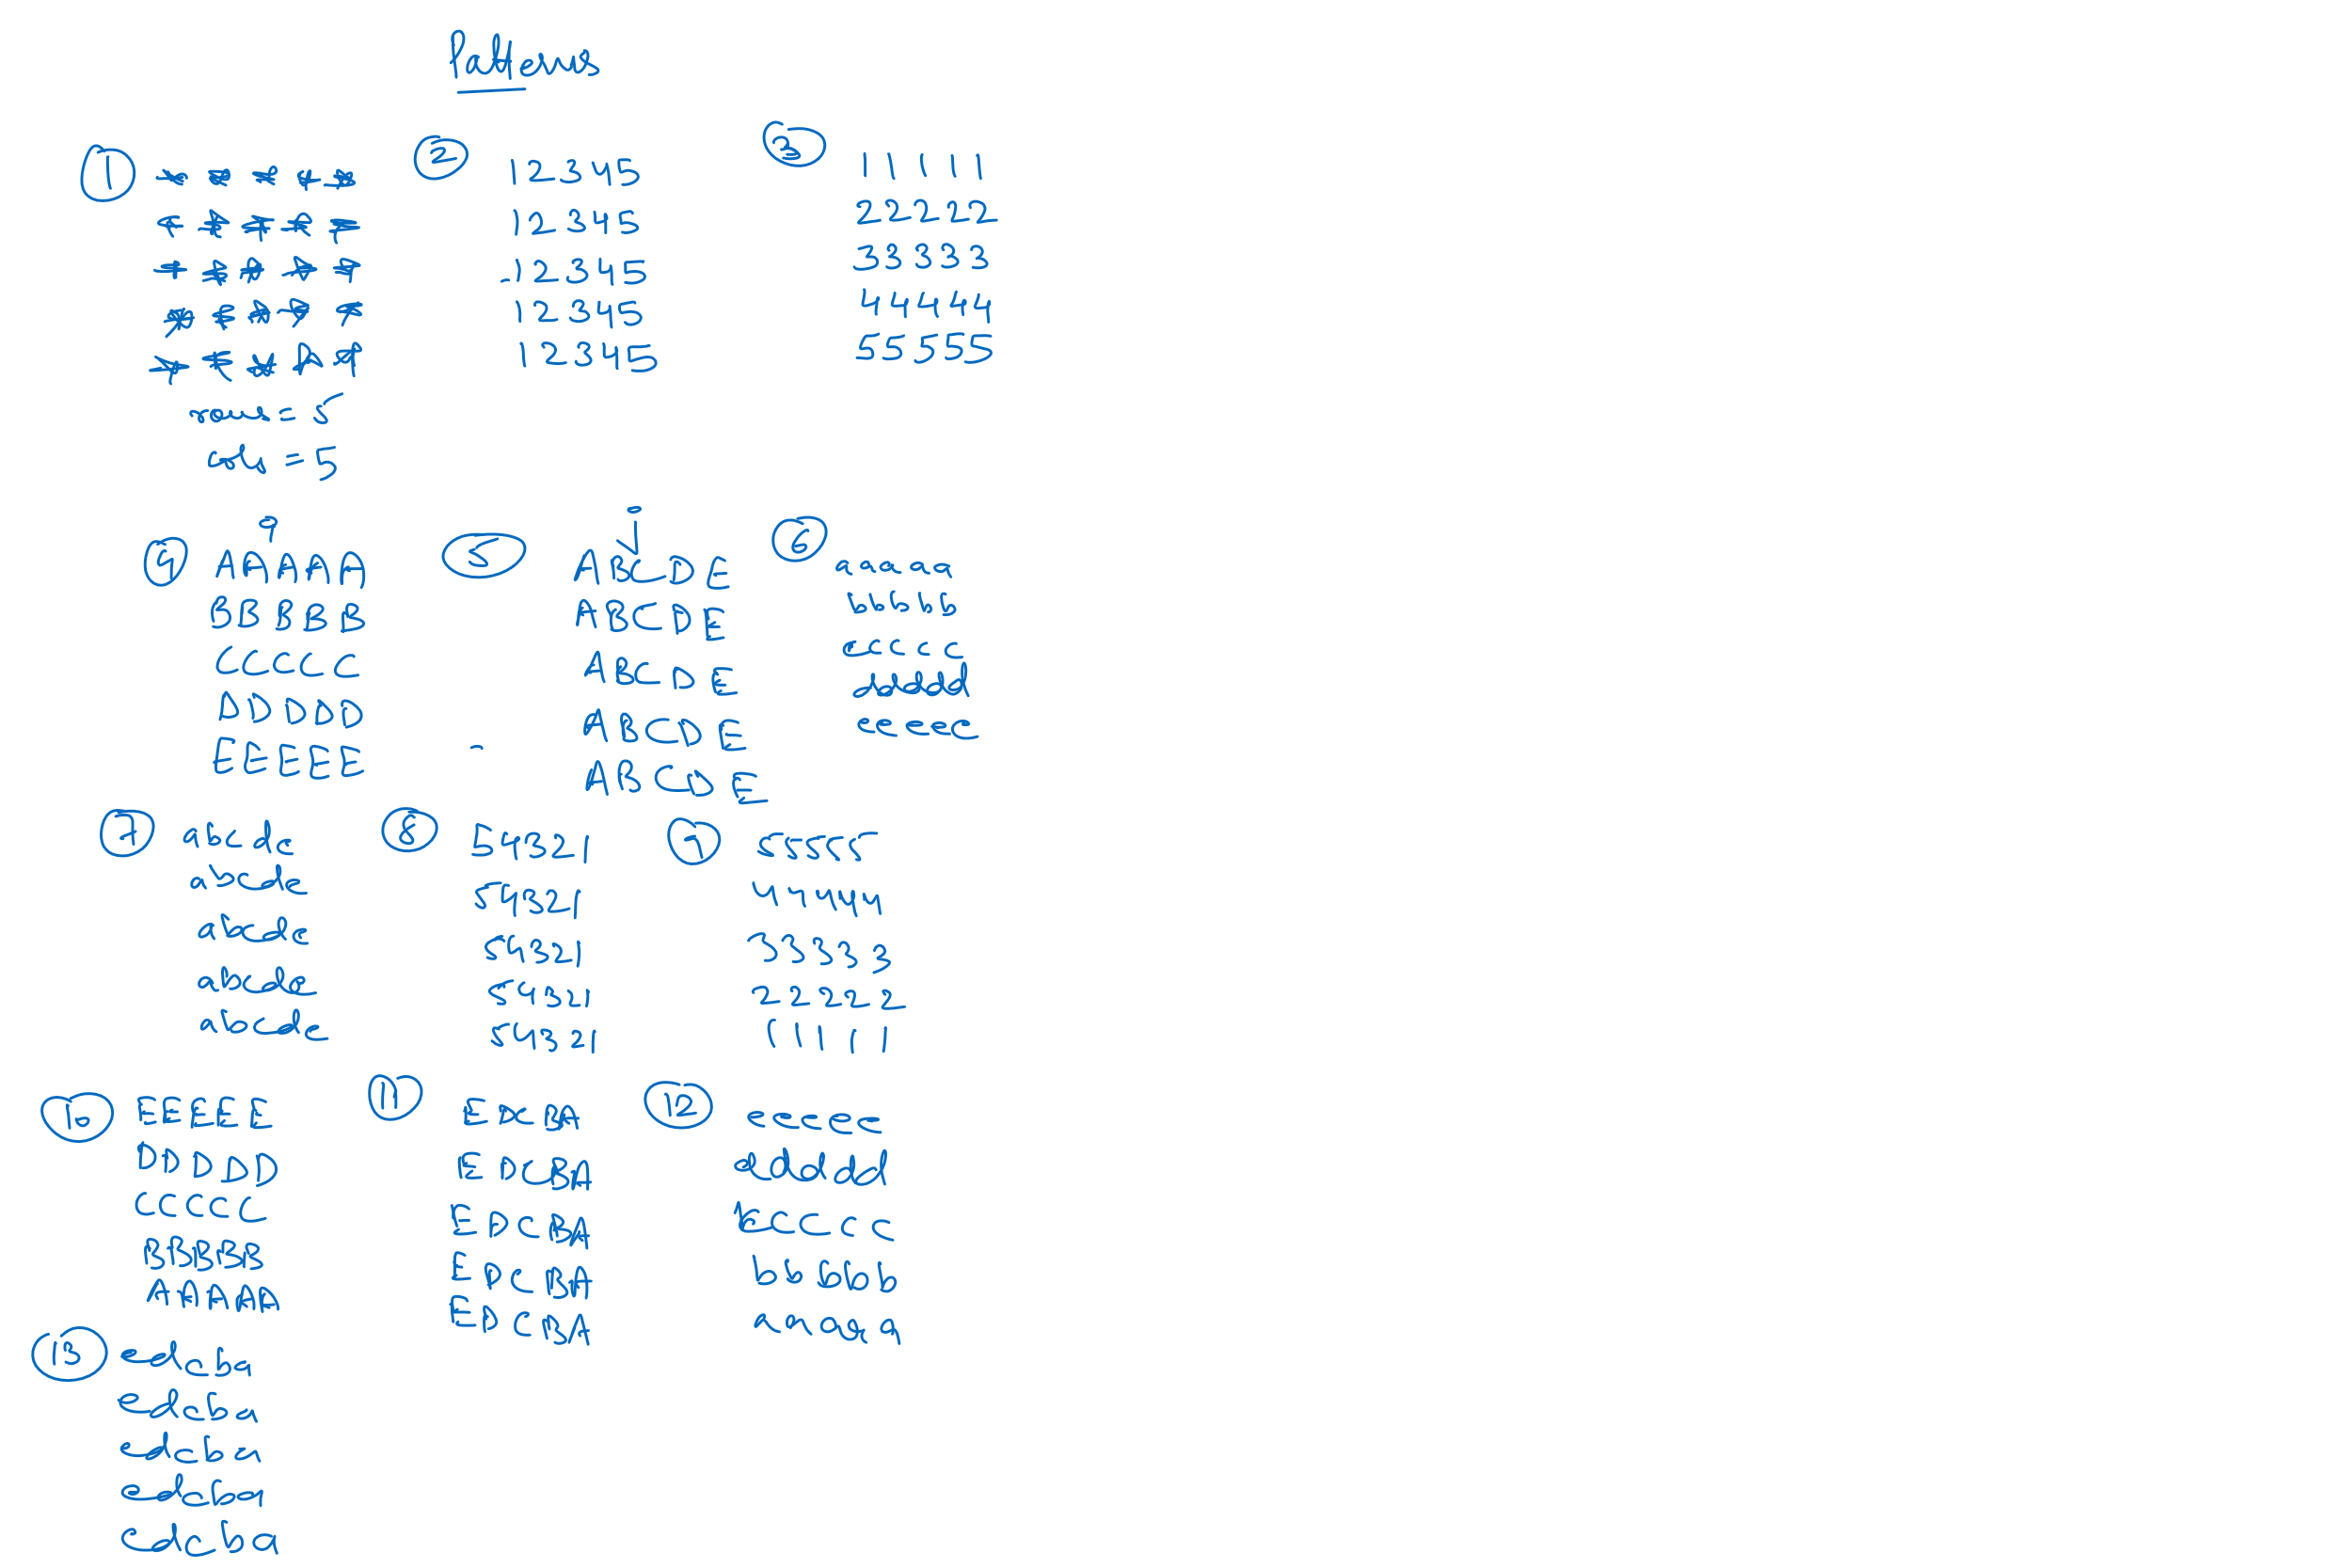 Patterns
1
* * * * *
* * * * *
* * * * *
* * * * *
* * * * *
rows = 5
cols = 5
2
1 2 3 4 5
1 2 3 4 5
1 2 3 4 5
1 2 3 4 5
1 2 3 4 5
3
1 1 1 1 1
2 2 2 2 2
3 3 3 3 3
4 4 4 4 4
5 5 5 5 5
4
A A A A A
B B B B B
C C C C C
D D D D D
E E E E E
5
A B C D E
A B C D E
A B C D E
A B C D E
A B C D E
6
a a a a a
b b b b b
c c c c c
d d d d d
e e e e e
7
a b c d e
a b c d e
a b c d e
a b c d e
a b c d e
8
5 4 3 2 1
5 4 3 2 1
5 4 3 2 1
5 4 3 2 1
5 4 3 2 1
9
5 5 5 5 5
4 4 4 4 4
3 3 3 3 3
2 2 2 2 2
1 1 1 1 1
10
E E E E E
D D D D D
C C C C C
B B B B B
A A A A A
11
E D C B A
E D C B A
E D C B A
E D C B A
E D C B A
12
e e e e e
d d d d d
c c c c c
b b b b b
a a a a a
13
e d c b a
e d c b a
e d c b a
e d c b a
e d c b a